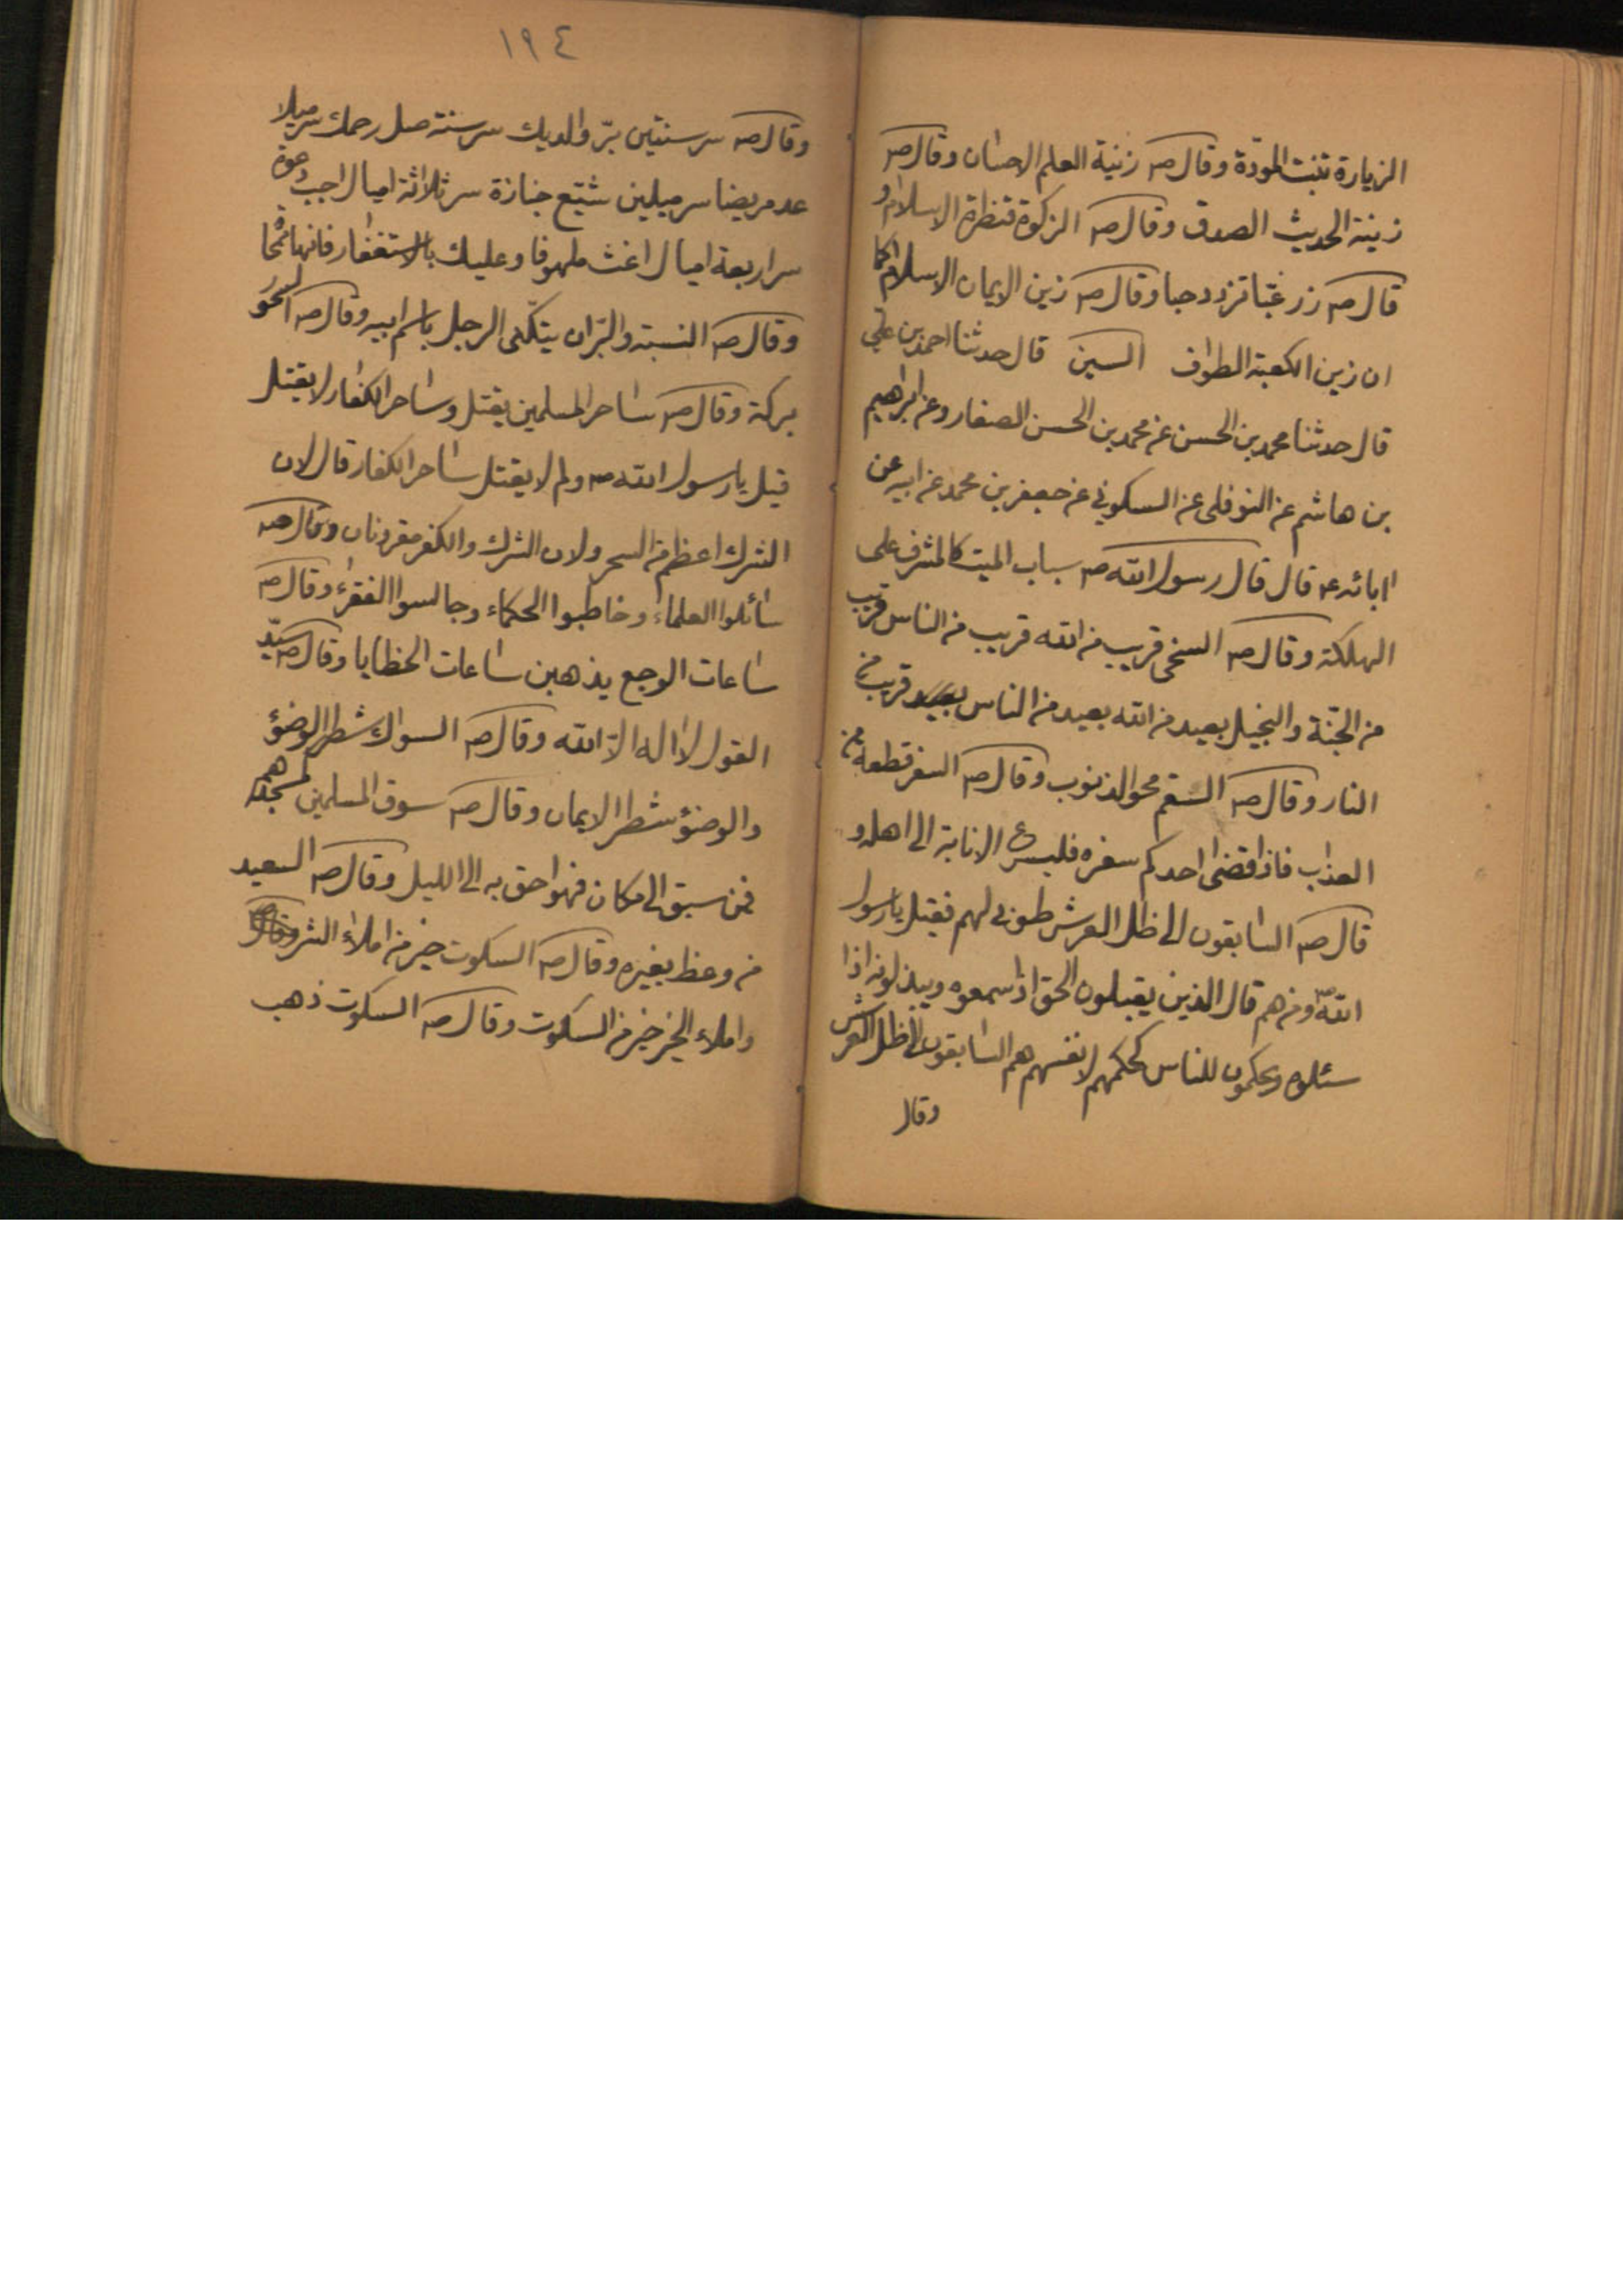 الزيارة تنبت المودّة وقال صـ زينة العلم الاحسان وقال صـ
زينة الحديث الصدق وقال صـ الزكوة قنطرة الاسلام و
قال صـ زر غبّا تزدد حبا وقال صـ زين الايمان الاسلام كما
ان زين الكعبة الطواف السين قال حدثنا احمد بن علي
قال حدثنا محمد بن الحسن عن محمد بن الحسن الصفار وعن ابراهيم
بن هاشم عن النوفلى عن السكوني عن جعفر بن محمد عن ابيه عن
ابائه ع قال قال رسول الله صـ سباب الميت كالمشرف على
الهلكة وقال صـ السخى قريب من الله قريب من الناس قريب
من الجنّة والبخيل بعيد من الله بعيد من الناس قريب من
النار وقال صـ السقم محو الذنوب وقال صـ السفر قطعة من
العذاب فاذا قضى احدكم سفره فليسرع الانابة الى اهله و
قال صـ السابقون الى ظل العرش طوبى لهم فقيل يا رسول
الله صـ ومن هم قال الذين يقبلون الحق اذا سمعوه ويبذلونه اذا
سئلوه ويحكمون للناس كحكمهم لانفسهم هم السابقون الى ظل العرش
وقال
١٩٤
وقال صـ سر سنتين برّ والديك سر سنة صل رحمك سر ميلا
عد مريضا سر ميلين شيّع جنازة سر ثلاثة اميال اجب دعوة
سر اربعة اميال اغث ملهوفا وعليك بالاستغفار فانها
وقال صـ النسبة والبّر ان يتكنّى الرجل باسم ابيه وقال صـ السحور
بركة وقال صـ ساحر المسلمين يقتل وساحر الكفار لا يقتل
قيل يا رسول الله صـ ولم لا يقتل ساحر الكفار قال لان
الشرك اعظم من السحر ولان الشرك والكفر مقرونان وقال صـ
سائلوا العلماء وخاطبوا الحكماء وجالسوا الفقراء وقال صـ
ساعات الوجع يذهبن ساعات الخطايا وقال صـ سيّد
القول لا اله الاّ الله وقال صـ السواك شطر الوضؤ
والوضؤ شطر الايمان وقال صـ سوق المسلمين كمسجدهم
فمن سبق الى مكان فهو احق به الى الليل وقال صـ السعيد
من وعظ بغيره وقال صـ السكوت خير من املاء الشر
واملاء الخير خير من السكوت وقال صـ السكوت ذهب